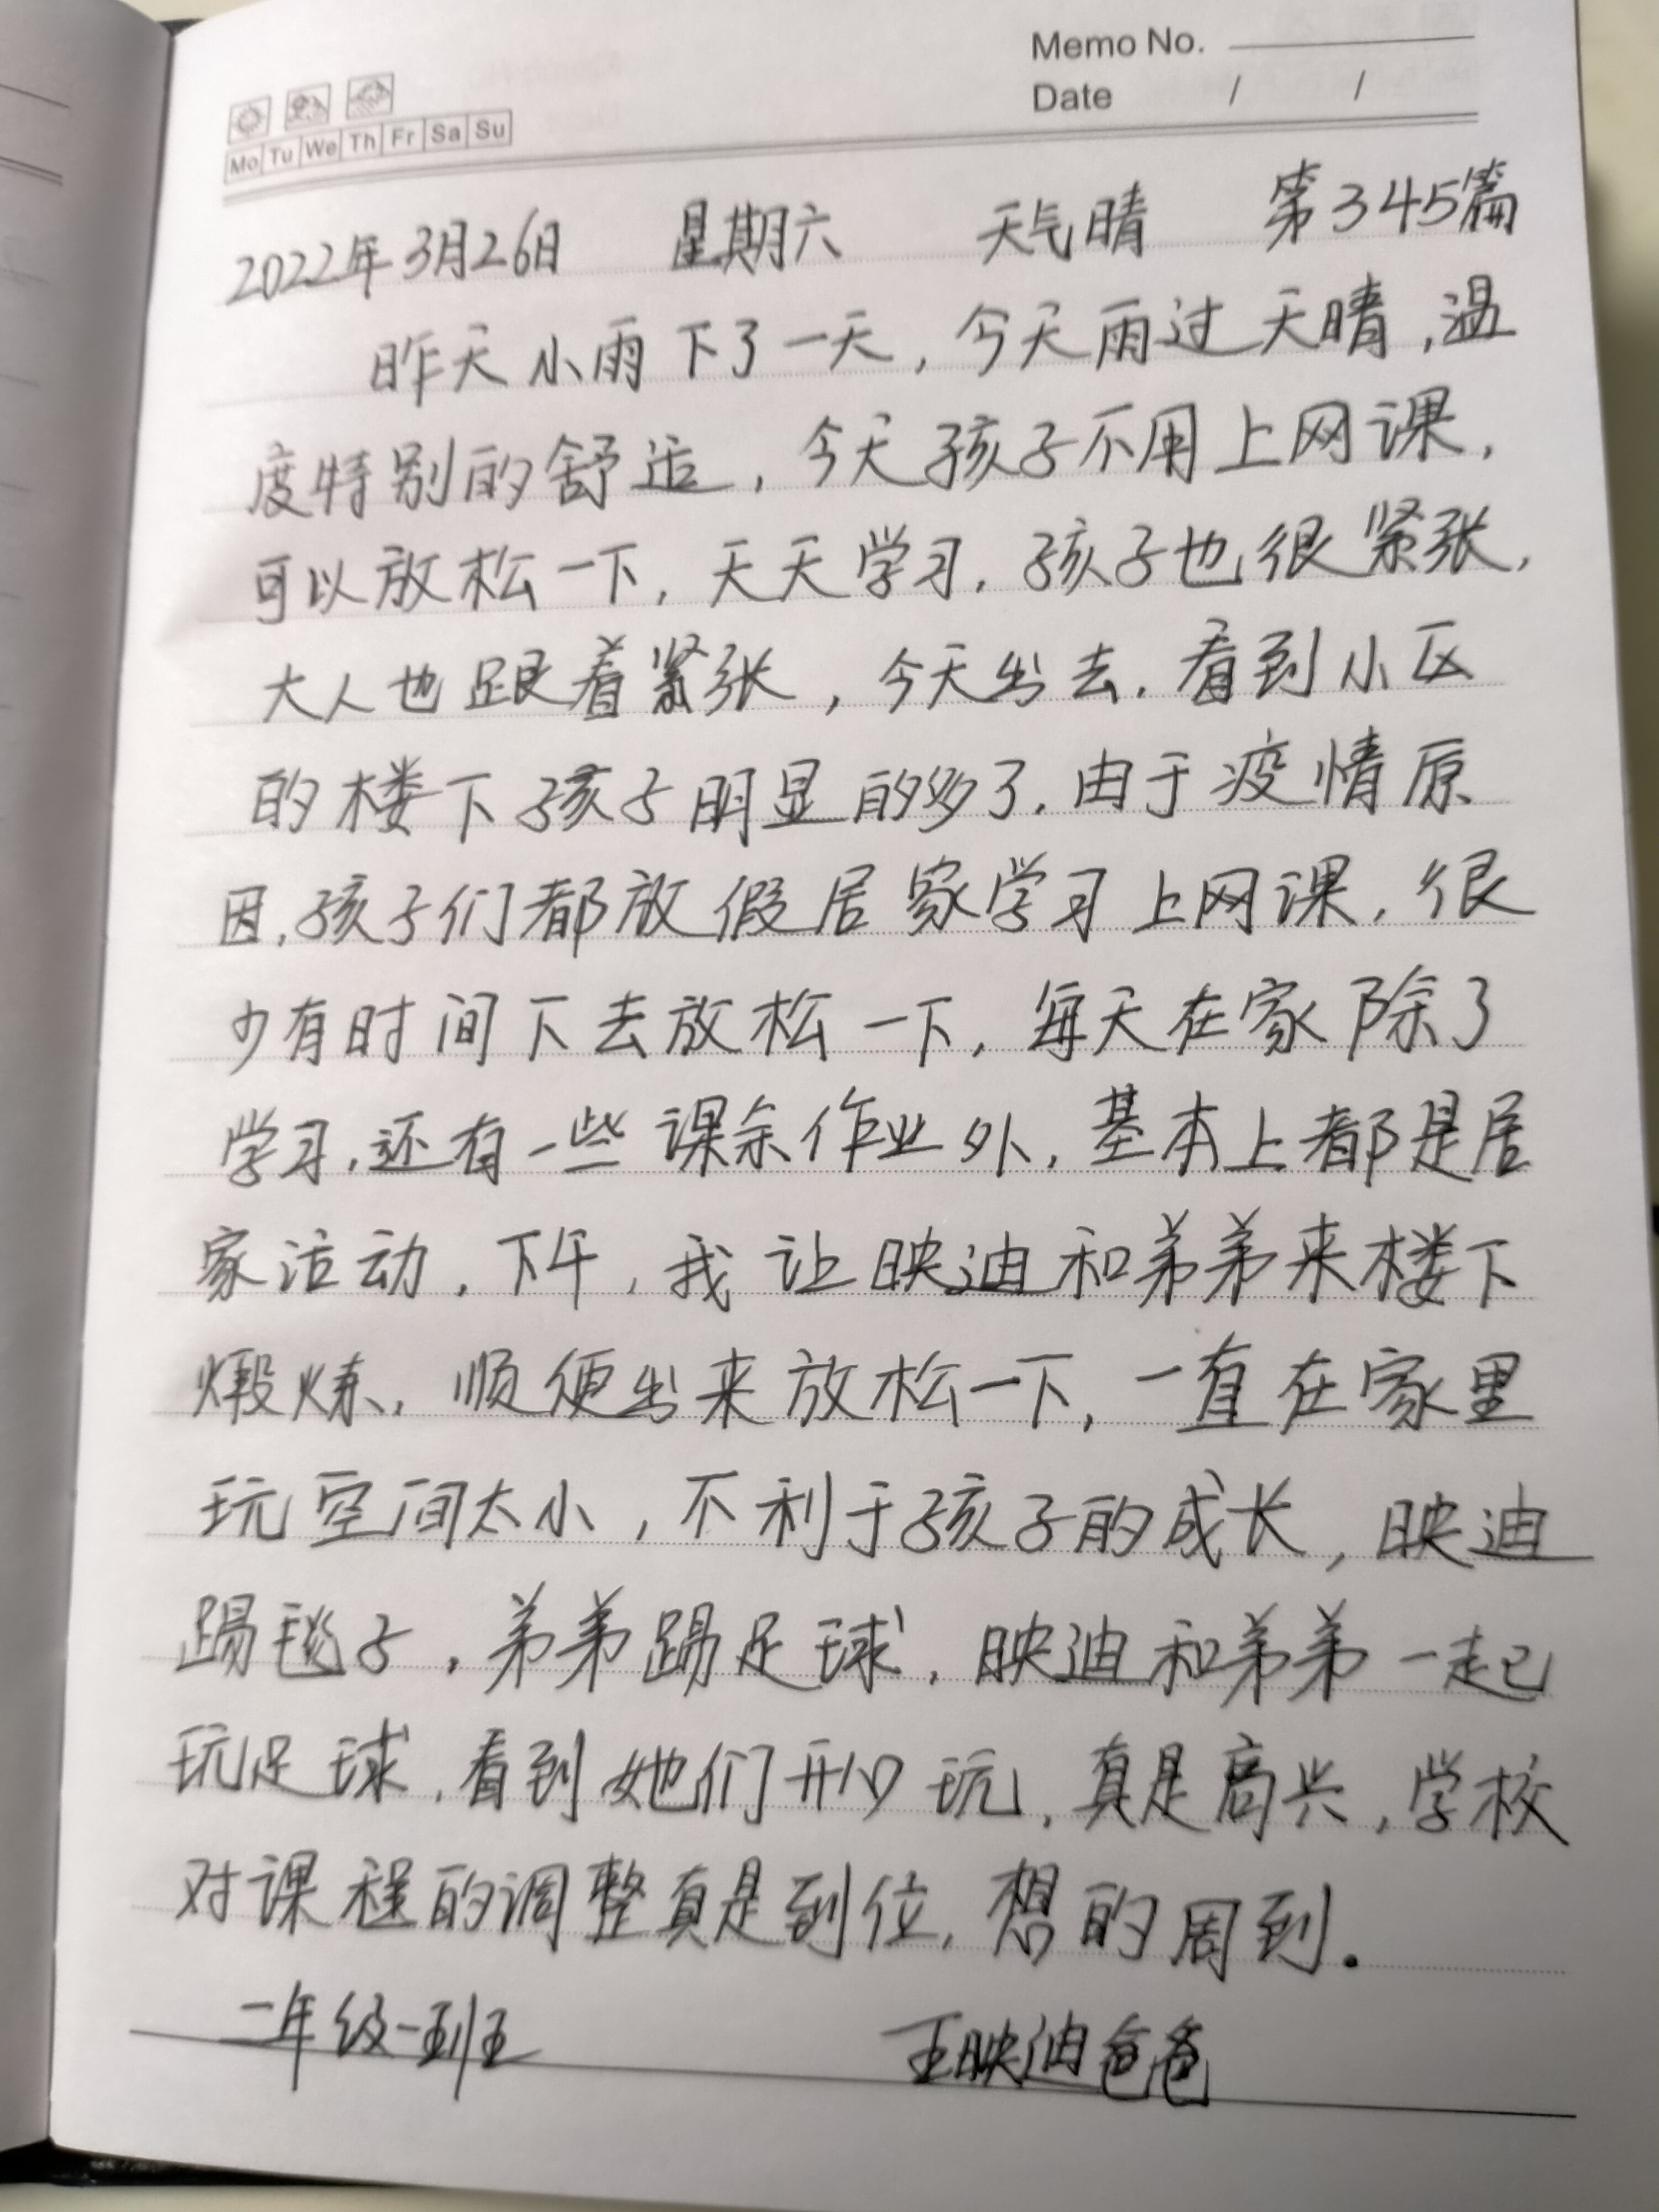 Memo No.
Date / /
Mo Tu We Th Fr Sa Su
2022年3月26日 星期六 天气晴 第345篇
昨天小雨下了一天，今天雨过天晴，温
度特别的舒适，今天孩子不用上网课，
可以放松一下，天天学习，孩子也很紧张，
大人也跟着紧张，今天出去，看到小区
的楼下孩子明显的多了，由于疫情原
因，孩子们都放假居家学习上网课，很
少有时间下去放松一下，每天在家除了
学习，还有一些课余作业外，基本上都是居
家活动，下午，我让映迪和弟弟来楼下
煅炼，顺便出来放松一下，一直在家里
玩空间太小，不利于孩子的成长，映迪
踢毯子，弟弟踢足球，映迪和弟弟一起
玩足球，看到她们开心玩，真是高兴，学校
对课程的调整真是到位，想的周到.
二年级一班 王映迪爸爸